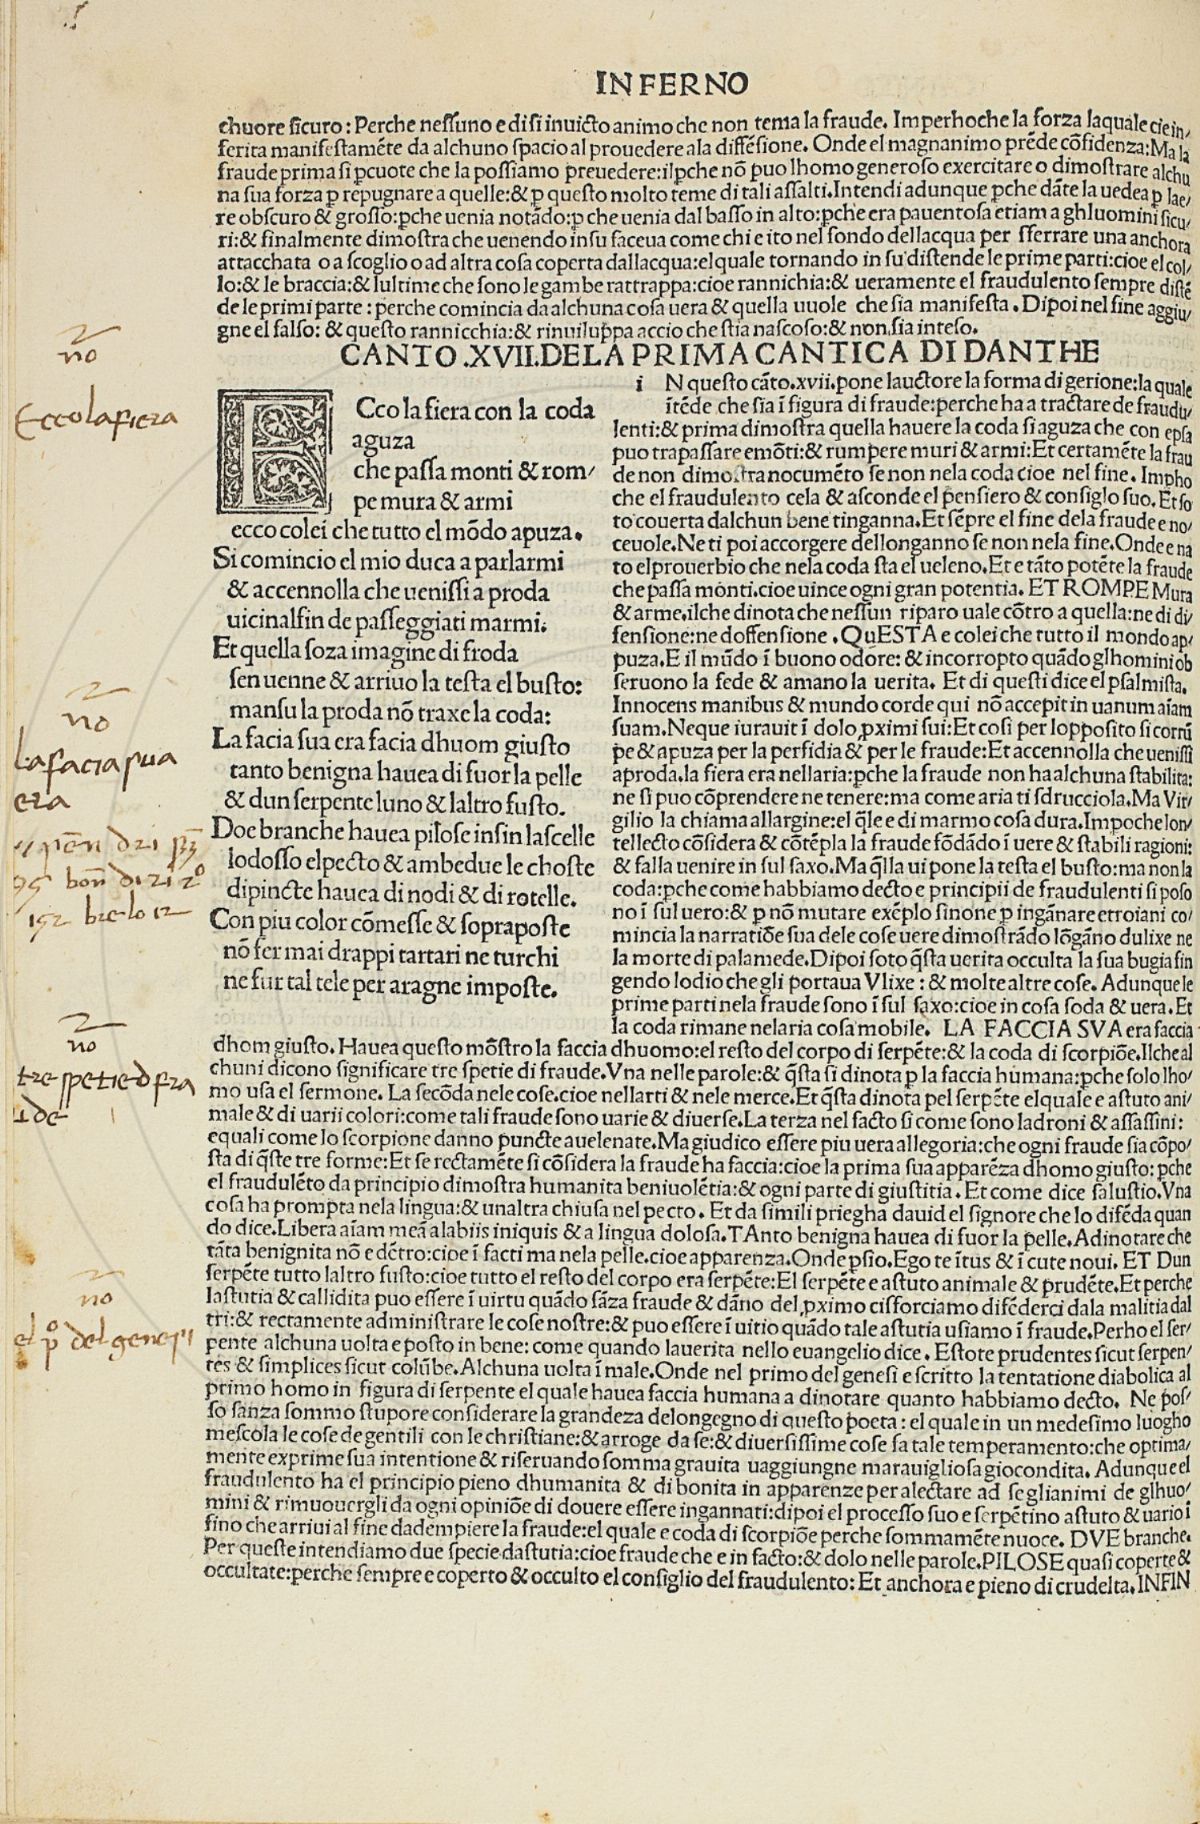 INFERNO
chuore ſicuro: Perche neſſuno e di ſi inuicto animo che non tema la fraude. Imperhoche la forza laquale cie in/
ferita manifeſtamẽte da alchuno ſpacio al prouedere ala diffẽſione. Onde el magnanimo prẽde cõfidenza: Ma la
fraude prima ſi ꝑcuote che la poſſiamo preuedere: ilꝑche nõ puo lhomo generoſo exercitare o dimoſtrare alchu
na ſua forza ꝑ repugnare a quelle: & ꝑ queſto molto teme di tali aſſalti. Intendi adunque ꝑche dãte la uedea ꝑ lae/
re obſcuro & groſſo: ꝑche uenia notãdo: ꝑ che uenia dal baſſo in alto: ꝑche era pauentoſa etiam a ghluomini ſicu/
ri: & finalmente dimoſtra che uenendo inſu faceua come chi e ito nel fondo dellacqua per ſferrare una anchora
attacchata o a ſcoglio o ad altra coſa coperta dallacqua: el quale tornando in ſu diſtende le prime parti: cioe el col/
lo: & le braccia: & lultime che ſono le gambe rattrappa: cioe rannichia: & ueramente el fraudulento ſempre diſtẽ
de le primi parte: perche comincia da alchuna coſa uera & quella uuole che ſia manifeſta. Dipoi nel fine aggiu/
gne el falſo: & queſto rannicchia: & rinuiluppa accio che ſtia naſcoſo: & non ſia inteſo.
CANTO .XVII. DE LA PRIMA CANTICA DI DANTHE
ECco la fiera con la coda
aguza
che paſſa monti & rom/
pe mura & armi
ecco colei che tutto el mõdo apuza.
Si comincio el mio duca a parlarmi
& accennolla che ueniſſi a proda
uicinal fin de paſſeggiati marmi.
Et quella ſoza imagine di froda
ſen uenne & arriuo la teſta el buſto:
manſu la proda nõ traxe la coda:
La facia ſua era facia dhuom giuſto
tanto benigna hauea di fuor la pelle
& dun ſerpente luno & laltro fuſto.
Doe branche hauea piloſe inſin laſcelle
lo doſſo el pecto & ambedue le choſte
dipincte hauea di nodi & di rotelle.
Con piu color cõmeſſe & ſopraposte
nõ fer mai drappi tartari ne turchi
ne fur tal tele per aragne impoſte.
i N queſto cãto .xvii. pone lauctore la forma di gerione: la quale
ĩtẽde che ſia ĩ figura di fraude: perche ha a tractare de fraudu/
lenti: & prima dimoſtra quella hauere la coda ſi aguza che con epſa
puo trapaſſare emõti: & rumpere muri & armi: Et certamẽte la frau
de non dimoſtra nocumẽto ſe non nela coda cioe nel fine. Impho
che el fraudulento cela & aſconde el penſiero & conſiglo ſuo. Et ſo
to couerta dalchun bene tinganna. Et ſẽpre el fine dela fraude e no/
ceuole. Ne ti poi accorgere dellonganno ſe non nela fine. Onde e na
to el prouerbio che nela coda ſta el ueleno. Et e tãto potẽte la fraude
che paſſa mónti. cioe uince ogni gran potentia. ET ROMPE Mura
& arme. ilche dinota che neſſun riparo uale cõtro a quella: ne di di/
fenſione: ne doffenſione. QuESTA e colei che tutto il mondo ap/
puza. E il mũdo ĩ buono odore: & incorropto quãdo glhomini ob
ſeruono la fede & amano la uerita. Et di queſti dice el pſalmiſta.
Innocens manibus & mundo corde qui nõ accepit in uanum aĩam
ſuam. Neque iurauit ĩ dolo ꝓximi ſui: Et coſi per lo oppoſito ſi corrũ
pe & apuza per la perfidia & per le fraude: Et accennolla che ueniſſi
aproda. la fiera era nellaria: ꝑche la fraude non ha alchuna ſtabilita:
ne ſi puo cõprendere ne tenere: ma come aria ti ſdrucciola. Ma Vir/
gilio la chiama allargine: el q̃le e di marmo coſa dura. Impoche lon/
tellecto cõſidera & cõtẽpla la fraude fõdãdo ĩ uere & ſtabili ragioni:
& falla uenire in ſul ſaxo. Ma q̃lla ui pone la teſta el buſto: ma non la
coda: ꝑche come habbiamo decto e principii de fraudulenti ſi poſo
no ĩ ſul uero: & ꝑ nõ mutare exẽplo ſinone ꝑ ingãnare e troiani co/
mincia la narratiõe ſua dele coſe uere dimoſtrãdo lõgãno dulixe ne
la morte di palamede. Dipoi ſoto q̃ſta uerita occulta la ſua bugia fin
gendo lodio che gli portaua Vlixe: & molte altre coſe. Adunque le
prime parti nela fraude ſono ĩ ſul ſaxo: cioe in coſa ſoda & uera. Et
la coda rimane nelaria coſa mobile. LA FACCIA SVA era faccia
dhom giuſto. Hauea queſto mõſtro la faccia dhuomo: el reſto del corpo di ſerpẽte: & la coda di ſcorpiõe. Ilche al
chuni dicono ſignificare tre ſpetie di fraude. Vna nelle parole: & q̃ſta ſi dinota ꝑ la faccia humana: ꝑche ſolo lho/
mo uſa el ſermone. La ſecõda nele coſe. cioe nellarti & nele merce. Et q̃ſta dinota pel ſerpẽte elquale e aſtuto ani/
male & di uarii colori: come tali fraude ſono uarie & diuerſe. La terza nel facto ſi come ſono ladroni & aſſaſſini:
equali come lo ſcorpione danno puncte auelenate. Ma giudico eſſere piu uera allegoria: che ogni fraude ſia cõpo/
ſta di q̃ſte tre forme: Et ſe rectamẽte ſi cõſidera la fraude ha faccia: cioe la prima ſua apparẽza dhomo giuſto: ꝑche
el fraudulẽto da principio dimoſtra humanita beniuolẽtia: & ogni parte di giuſtitia. Et come dice ſaluſtio. Vna
coſa ha prompta nela lingua: & unaltra chiuſa nel pecto. Et da ſimili priegha dauid el ſignore che lo difẽda quan
do dice. Libera aĩam meã a labiis iniquis & a lingua doloſa. TAnto benigna hauea di fuor la pelle. Adinotare che
tãta benignita nõ e dẽtro: cioe ĩ facti ma nela pelle. cioe apparenza. Onde pſio. Ego te ĩtus & ĩ cute noui. ET Dun
ſerpẽte tutto laltro fuſto: cioe tutto el reſto del corpo era ſerpẽte: El ſerpẽte e aſtuto animale & prudẽte. Et perche
laſtutia & callidita puo eſſere ĩ uirtu quãdo ſãza fraude & dãno del ꝓximo ciſforciamo difẽderci dala malitia dal
tri: & rectamente adminiſtrare le coſe noſtre: & puo eſſere ĩ uitio quãdo tale aſtutia uſiamo ĩ fraude. Perho el ſer/
pente alchuna uolta e poſto in bene: come quando la uerita nello euangelio dice. Eſtote prudentes ſicut ſerpen/
tes & ſimplices ſicut colũbe. Alchuna uolta ĩ male. Onde nel primo del geneſi e ſcritto la tentatione diabolica al
primo homo in figura di ſerpente el quale hauea faccia humana a dinotare quanto habbiamo decto. Ne poſ/
ſo ſanza ſommo ſtupore conſiderare la grandeza delongegno di queſto poeta: el quale in un medeſimo luogho
meſcola le coſe de gentili con le chriſtiane: & arroge da ſe: & diuerſiſſime coſe fa tale temperamento: che optima/
mente exprime ſua intentione & riſeruando ſomma grauita uaggiungne marauiglioſa giocondita. Adunque el
fraudulento ha el principio pieno dhumanita & di bonita in apparenze per alectare ad ſe glianimi de glhuo/
mini & rimuouergli da ogni opiniõe di douere eſſere ingannati: dipoi el proceſſo ſuo e ſerpẽtino aſtuto & uario ĩ
fino che arriui al fine dadempiere la fraude: el quale e coda di ſcorpiõe perche ſommamẽte nuoce. DVE branche.
Per queſte intendiamo due ſpecie daſtutia: cioe fraude che e in facto: & dolo nelle parole. PILOSE quaſi coperte &
occultate: perche ſempre e coperto & occulto el conſiglio del fraudulento: Et anchora e pieno di crudelta. INFIN
no
Ecco la fiera
no
La facia sua
era
no
tre spetie d fra
ude
no
el pº del genesi